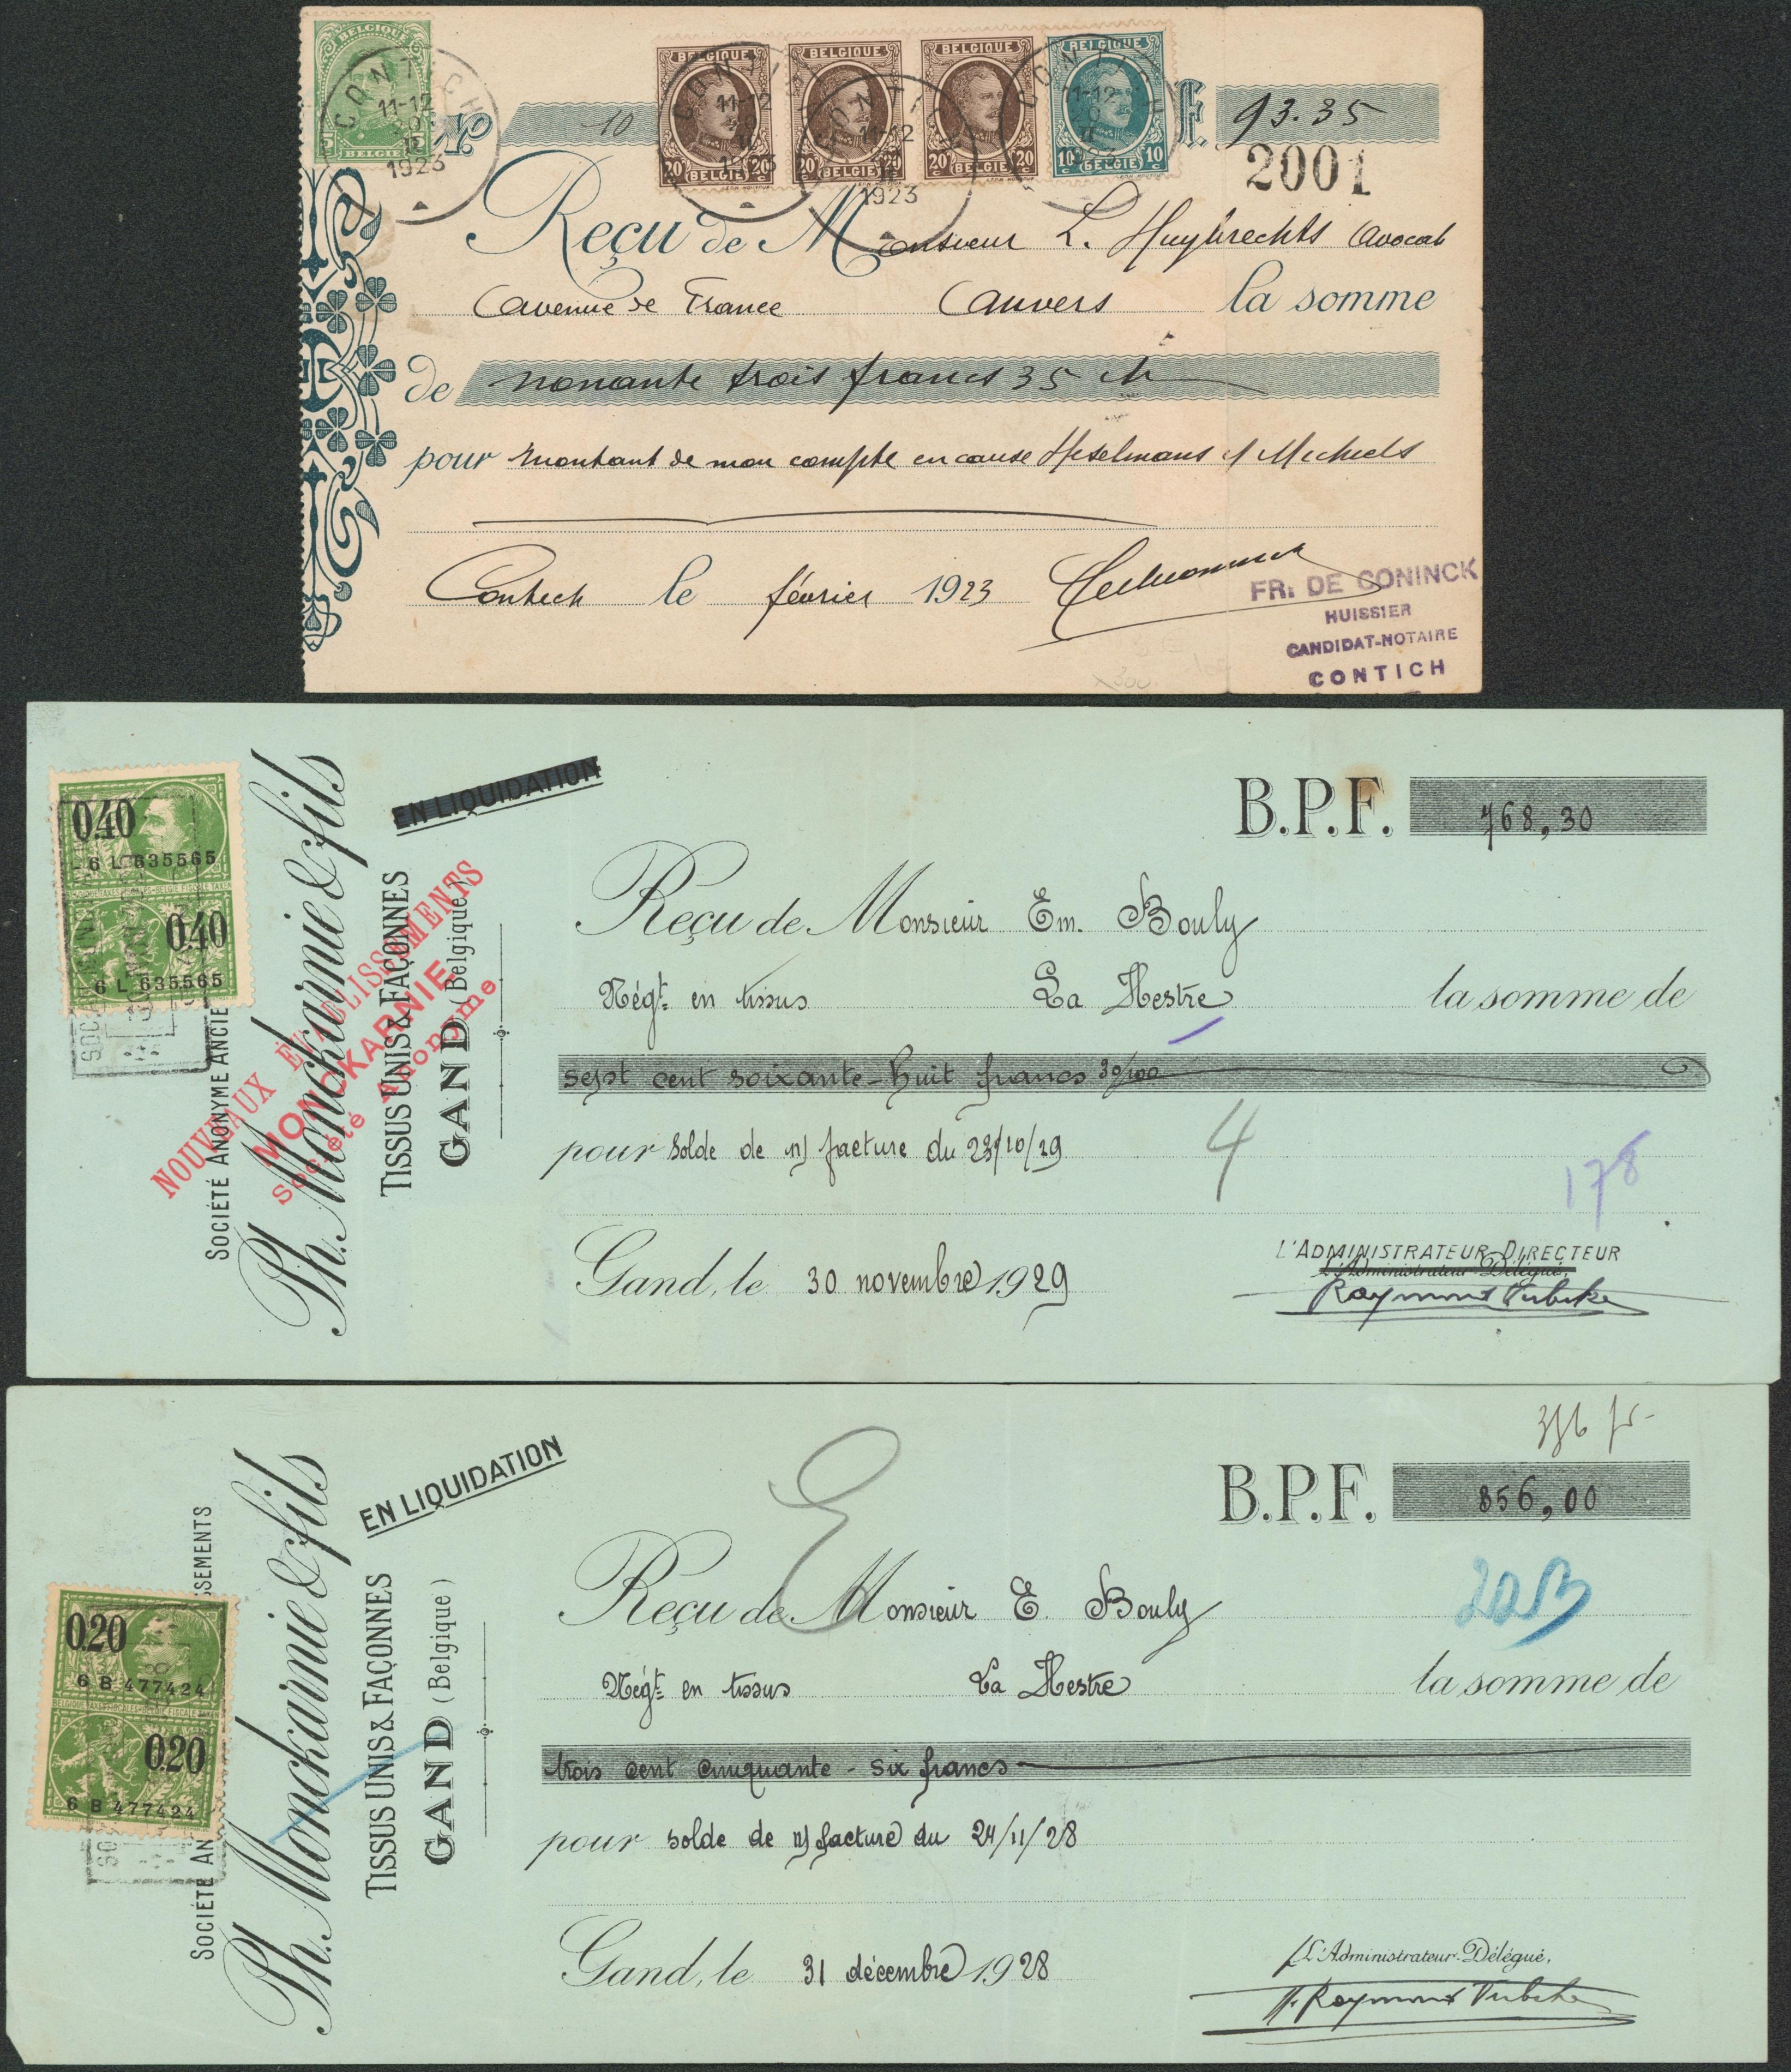 BELGIQUE
BELGIE
CONTICH
11-12
1923
10
BELGIQUE
20c 20c
BELGIE
BELGIQUE
20c 20c
BELGIE
BELGIQUE
20c 20c
BELGIE
BELGIQUE
10c 10c
BELGIE
11-12
1923
11-12
1923
11-12
F. 93.35
2001
Reçu de Monsieur L. Huybrechts Avocat
Avenue de France Anvers la somme
de nonante trois francs 35 
pour montant de mon compte en cause Heselmans Michiels
Contich le février 1923
FR. DE CONINCK
HUISSIER
CANDIDAT-NOTAIRE
CONTICH
0.40
6 L 635565
0.40
6 L 635565
SOCIÉTÉ ANONYME ANCIE
Ph. Monckarnie & fils
TISSUS UNIS & FAÇONNES
GAND (Belgique)
EN LIQUIDATION
NOUVEAUX ÉTABLISSEMENTS
MONCKARNIE
Société Anonyme
B.P.F. 768,30
Reçu de Monsieur Em. Bouly
Négt. en tissus La Hestre la somme de
sept cent soixante-huit francs 30/100
pour solde de n/ facture du 23/10/29
4
178
Gand, le 30 novembre 1929
L'ADMINISTRATEUR-DIRECTEUR
L'Administrateur-Délégué,
0.20
6 B 477424
0.20
6 B 477424
SOCIÉTÉ AN SSEMENTS
Ph. Monckarnie & fils
TISSUS UNIS & FAÇONNES
GAND (Belgique)
EN LIQUIDATION
356 fr-
B.P.F. 356,00
Reçu de Monsieur E. Bouly
Négt. en tissus La Hestre la somme de
trois cent cinquante-six francs
pour solde de n/ facture du 24/11/28
Gand, le 31 décembre 1928
L'Administrateur-Délégué,